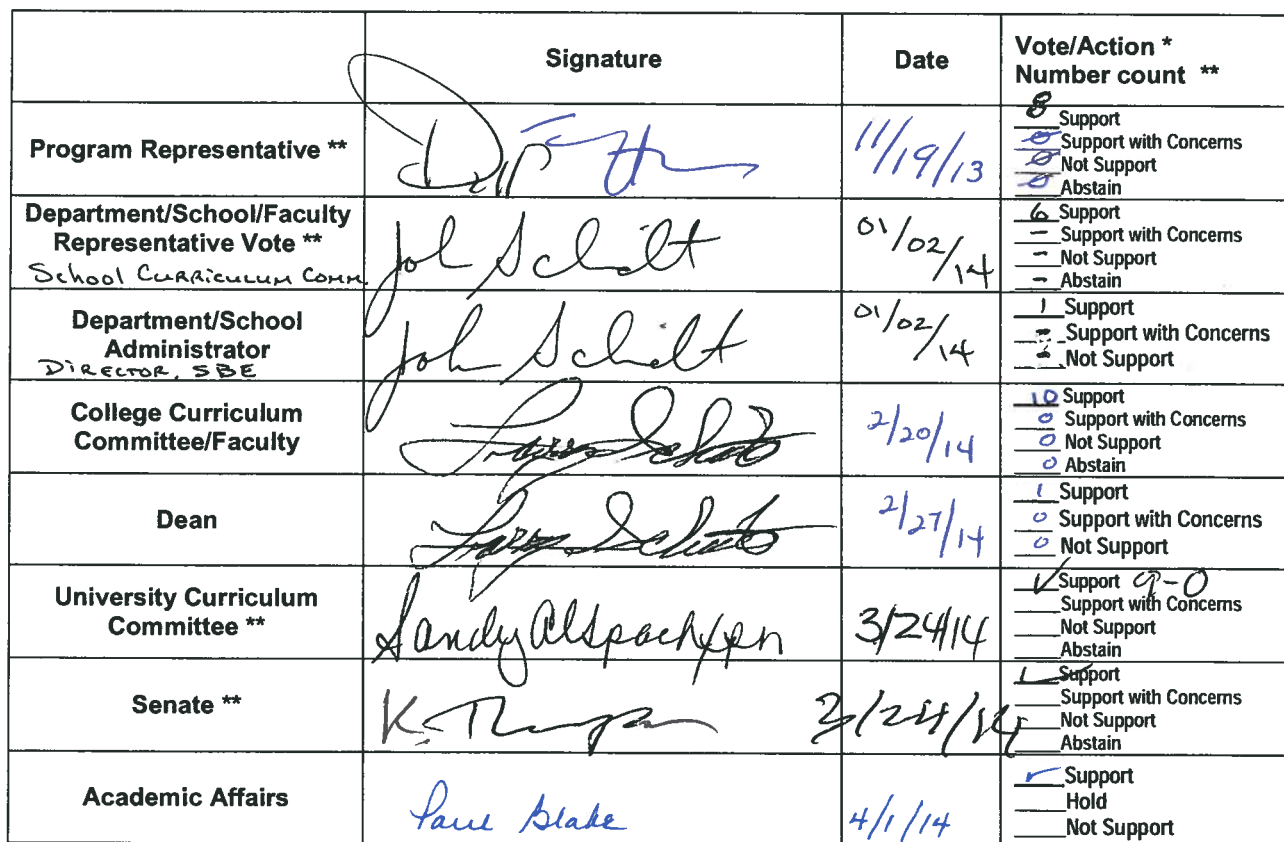 Signature Date Vote/Action *
Number count **
Program Representative ** 11/19/13 8 Support
0 Support with Concerns
0 Not Support
0 Abstain
Department/School/Faculty
Representative Vote **
School Curriculum Comm.
John Schildt 01/02/14 6 Support
- Support with Concerns
- Not Support
- Abstain
Department/School
Administrator
Director, SBE
John Schildt 01/02/14 1 Support
- Support with Concerns
- Not Support
College Curriculum
Committee/Faculty
2/20/14 10 Support
0 Support with Concerns
0 Not Support
0 Abstain
Dean 2/27/14 1 Support
0 Support with Concerns
0 Not Support
University Curriculum
Committee **
Sandy Alspach 3/24/14 ✓ Support 9-0
Support with Concerns
Not Support
Abstain
Senate ** K. 3/24/14 ✓ Support
Support with Concerns
Not Support
Abstain
Academic Affairs Paul Blake 4/1/14 ✓ Support
Hold
Not Support